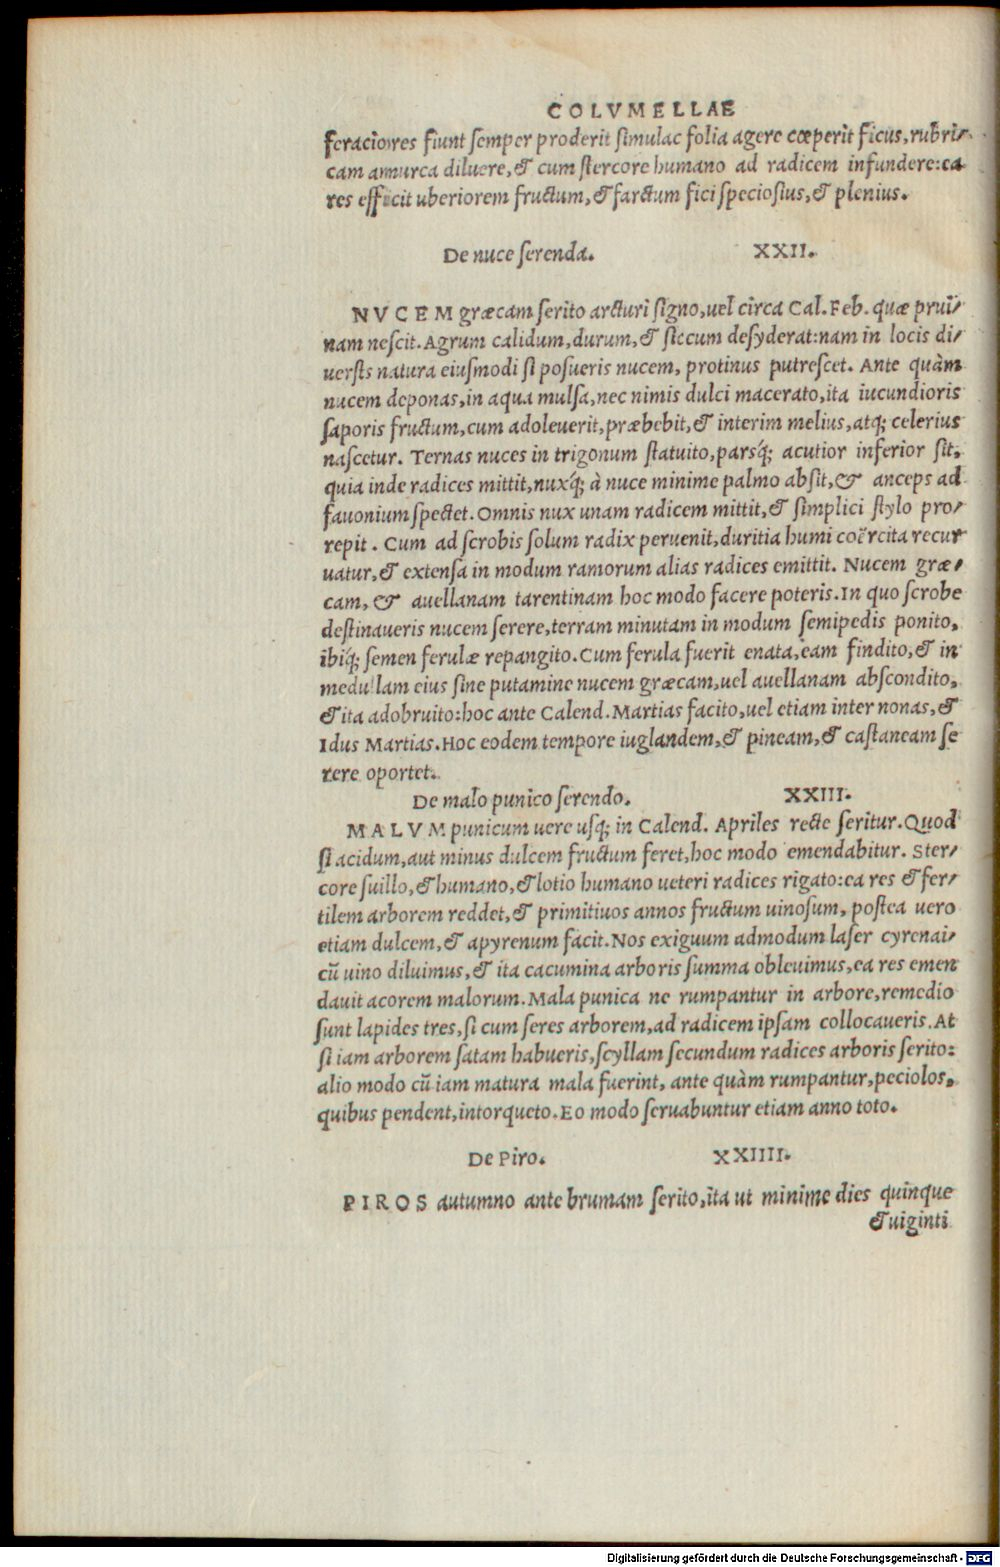 COLVMELLAE
feraciores fiunt semper proderit simulac folia agere cœperit ficus, rubri-
cam amurca diluere, & cum stercore humano ad radicem infundere: ea
res efficit uberiorem fructum, & farctum fici speciosius, & plenius.
De nuce serenda. XXII.
NVCEM græcam serito arcturi signo, uel circa Cal. Feb. quæ prui-
nam nescit. Agrum calidum, durum, & siccum desyderat: nam in locis di-
uersis natura eiusmodi si posueris nucem, protinus putrescet. Ante quàm
nucem deponas, in aqua mulsa, nec nimis dulci macerato, ita iucundioris
saporis fructum, cum adoleuerit, præbebit, & interim melius, atq; celerius
nascetur. Ternas nuces in trigonum statuito, parsq́; acutior inferior sit,
quia inde radices mittit, nuxq́; à nuce minime palmo absit, & anceps ad
fauonium spectet. Omnis nux unam radicem mittit, & simplici stylo pro-
repit. Cum ad scrobis solum radix peruenit, duritia humi coërcita recur
uatur, & extensa in modum ramorum alias radices emittit. Nucem græ-
cam, & auellanam tarentinam hoc modo facere poteris. In quo scrobe
destinaueris nucem serere, terram minutam in modum semipedis ponito,
ibiq́; semen ferulæ repangito. Cum ferula fuerit enata, eam findito, & in
medullam eius sine putamine nucem græcam, uel auellanam abscondito,
& ita adobruito: hoc ante Calend. Martias facito, uel etiam inter nonas, &
Idus Martias. Hoc eodem tempore iuglandem, & pineam, & castaneam se
rere oportet.
De malo punico serendo. XXIII.
MALVM punicum uere usq; in Calend. Apriles recte seritur. Quod
si acidum, aut minus dulcem fructum feret, hoc modo emendabitur. Ster-
core suillo, & humano, & lotio humano ueteri radices rigato: ea res & fer-
tilem arborem reddet, & primitiuos annos fructum uinosum, postea uero
etiam dulcem, & apyrenum facit. Nos exiguum admodum laser cyrenai-
cũ uino diluimus, & ita cacumina arboris summa obleuimus, ea res emen
dauit acorem malorum. Mala punica ne rumpantur in arbore, remedio
sunt lapides tres, si cum seres arborem, ad radicem ipsam collocaueris. At
si iam arborem satam habueris, scyllam secundum radices arboris serito:
alio modo cũ iam matura mala fuerint, ante quàm rumpantur, peciolos,
quibus pendent, intorqueto. Eo modo seruabuntur etiam anno toto.
De Piro. XXIIII.
PIROS autumno ante brumam serito, ita ut minime dies quinque
& uiginti
Digitalisierung gefördert durch die Deutsche Forschungsgemeinschaft - DFG